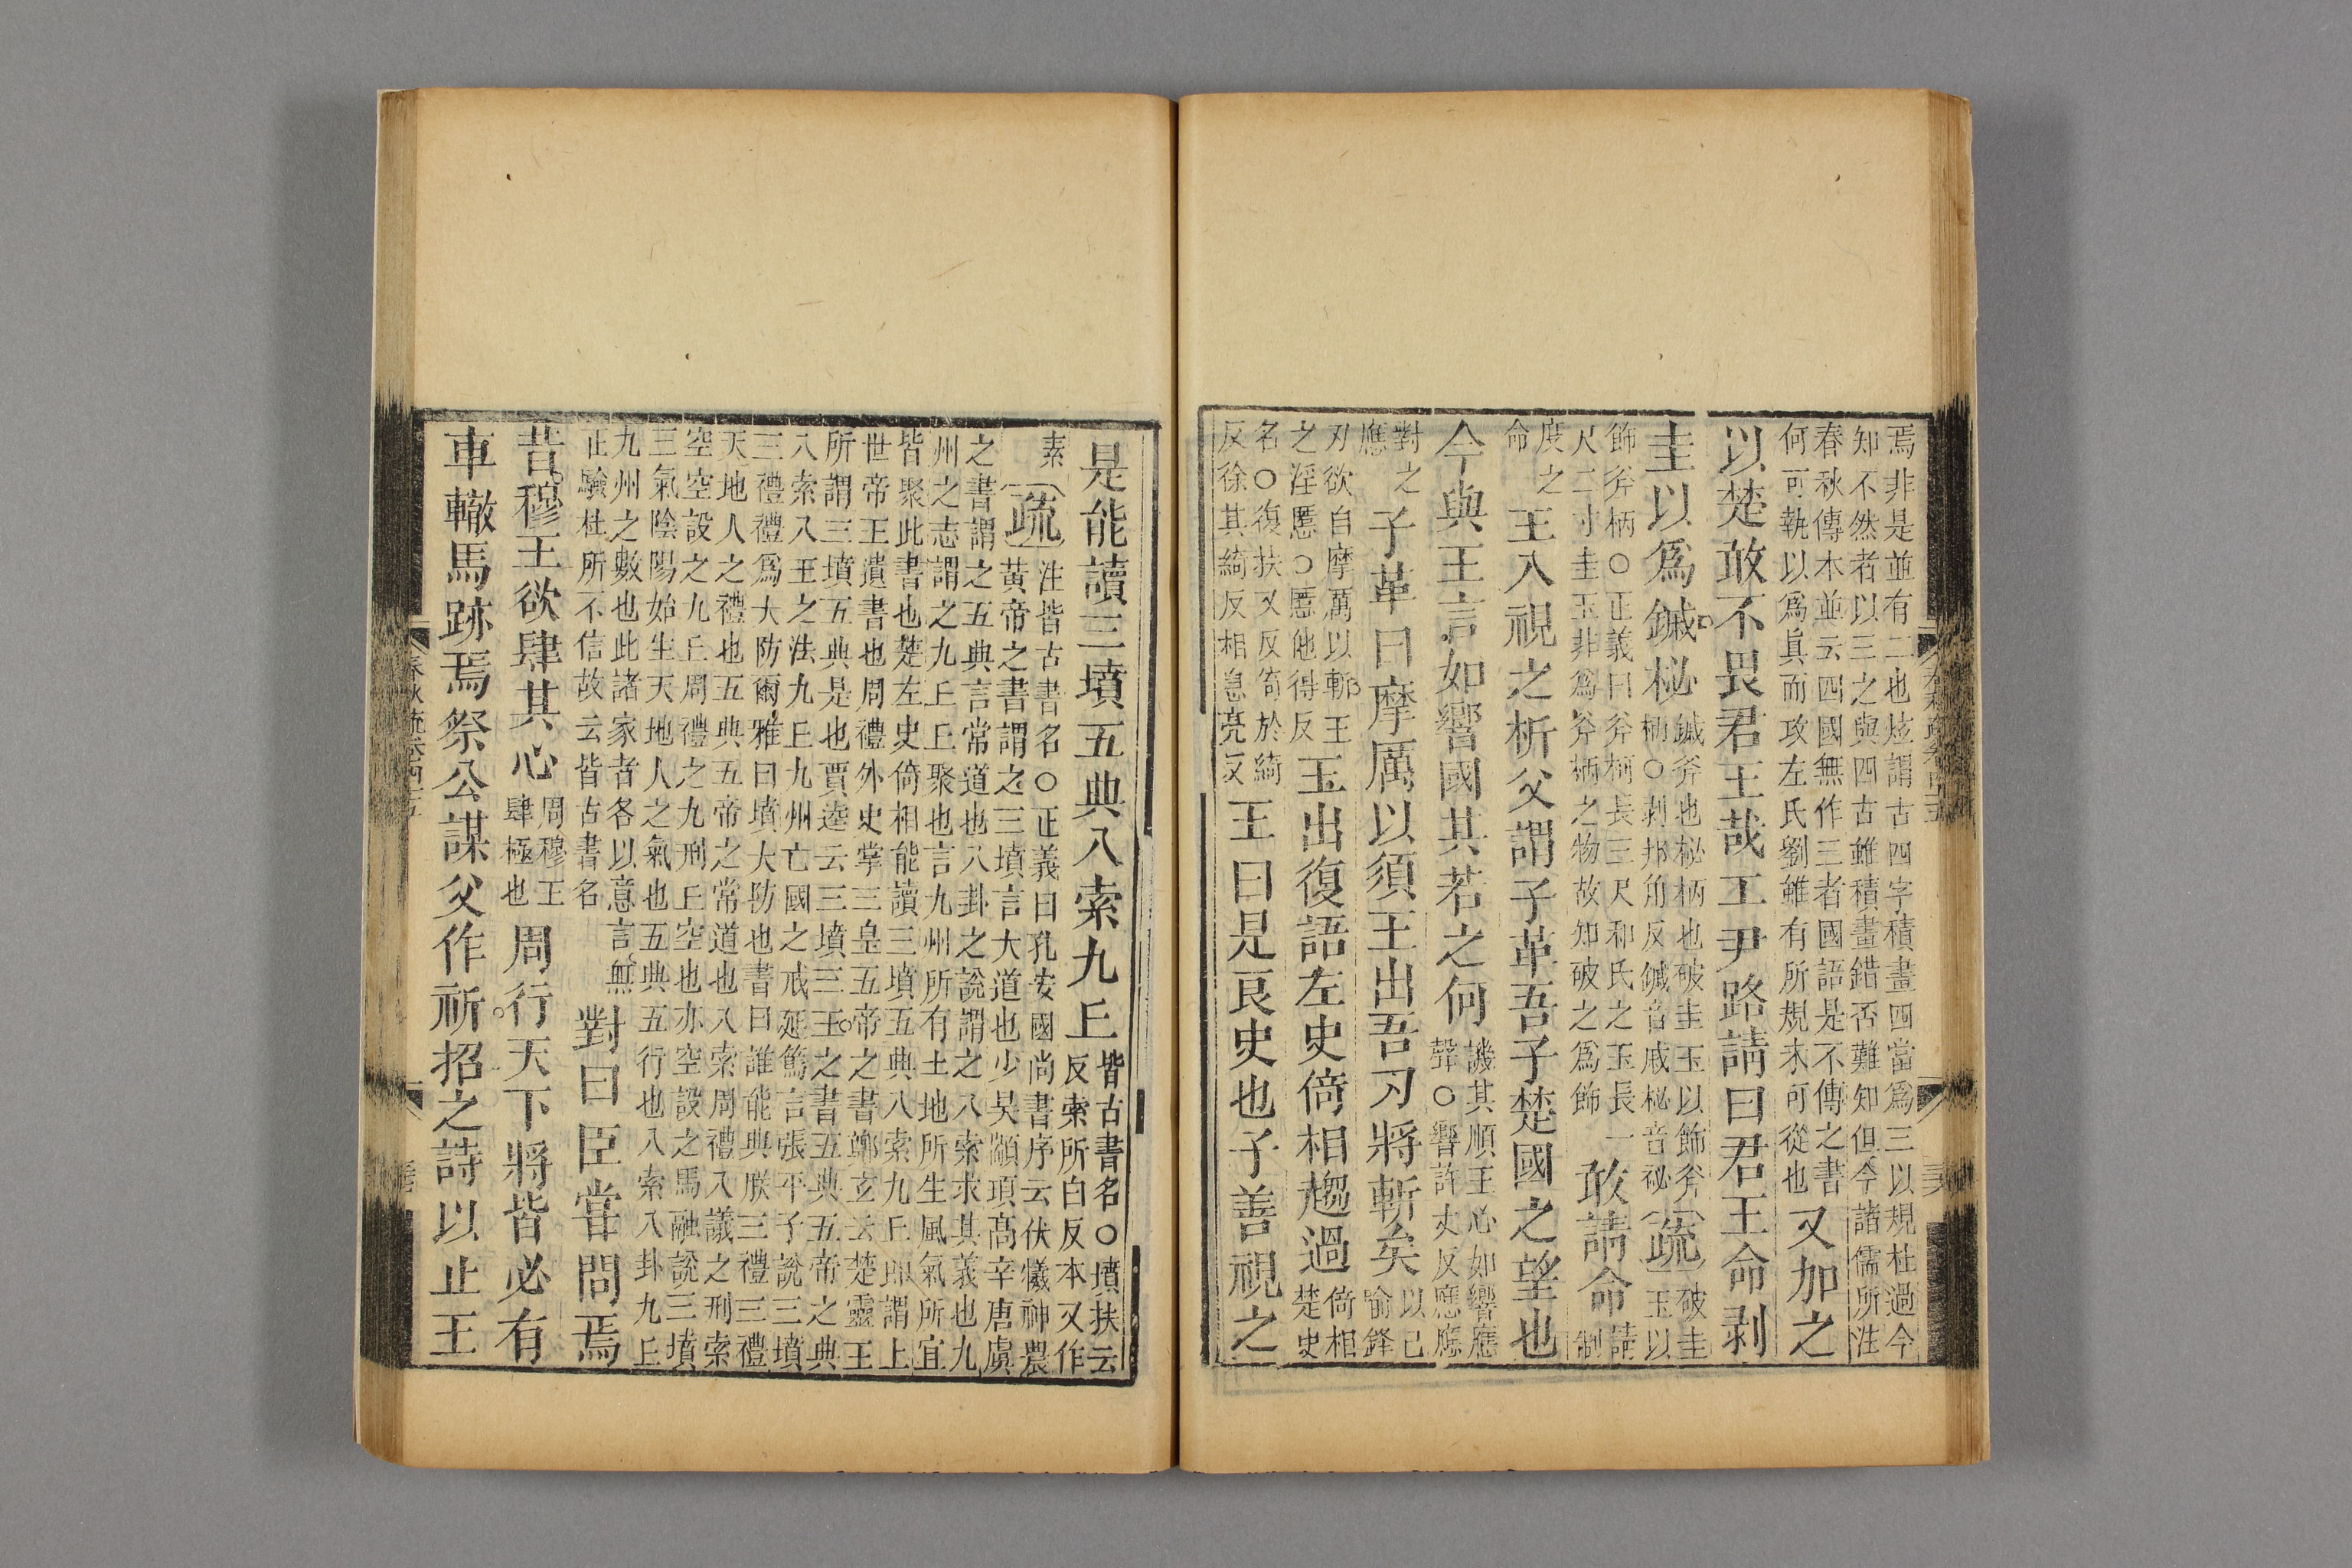 焉非是並有二也炫謂古四字積畫四當爲三以規杜過今
知不然者以三之與四古雖積畫錯否難知但今諸儒所注
春秋傳本並云四國無作三者國語是不傳之書
何可執以爲真而攻左氏劉雖有所規未可從也
又加之
以楚敢不畏君王哉工尹路請曰君王命剥
圭以爲鏚柲
鏚斧也柲柄也破圭玉以飾斧
柄○剥邦角反鏚音戚柲音祕
疏
破圭
玉以
飾斧柄○正義曰斧柄長三尺和氏之玉長一
尺二寸圭玉非爲斧柄之物故知破之爲飾
敢請命
請
制
度之
命
王入視之析父謂子革吾子楚國之望也
今與王言如響國其若之何
譏其順王心如響應
聲○響許丈反應應
對之
應
子革曰摩厲以須王出吾刃將斬矣
以己
喻鋒
刃欲自摩厲以斬王
之淫慝○慝他得反
王出復語左史倚相趨過
倚相
楚史
名○復扶又反倚於綺
反徐其綺反相息亮反
王曰是良史也子善視之
是能讀三墳五典八索九丘
皆古書名○墳扶云
反索所白反本又作
素
疏
注皆古書名○正義曰孔安國尚書序云伏犧神農
黃帝之書謂之三墳言大道也少昊顓頊高辛唐虞
之書謂之五典言常道也八卦之說謂之八索求其義也九
州之志謂之九丘丘聚也言九州所有土地所生風氣所宜
皆聚此書也楚左史倚相能讀三墳五典八索九丘即謂上
世帝王遺書也周禮外史掌三皇五帝之書鄭玄云楚靈王
所謂三墳五典是也賈逵云三墳三王之書五典五帝之典
八索八王之法九丘九州亡國之戒延篤言張平子說三墳
三禮禮爲大防爾雅曰墳大防也書曰誰能典朕三禮三禮
天地人之禮也五典五帝之常道也八索周禮八議之刑索
空空設之九丘周禮之九刑丘空也亦空設之馬融說三墳
三氣陰陽始生天地人之氣也五典五行也八索八卦九丘
九州之數也此諸家者各以意言無
正驗杜所不信故云皆古書名
對曰臣嘗問焉
昔穆王欲肆其心
周穆王
肆極也
周行天下將皆必有
車轍馬跡焉祭公謀父作祈招之詩以止王